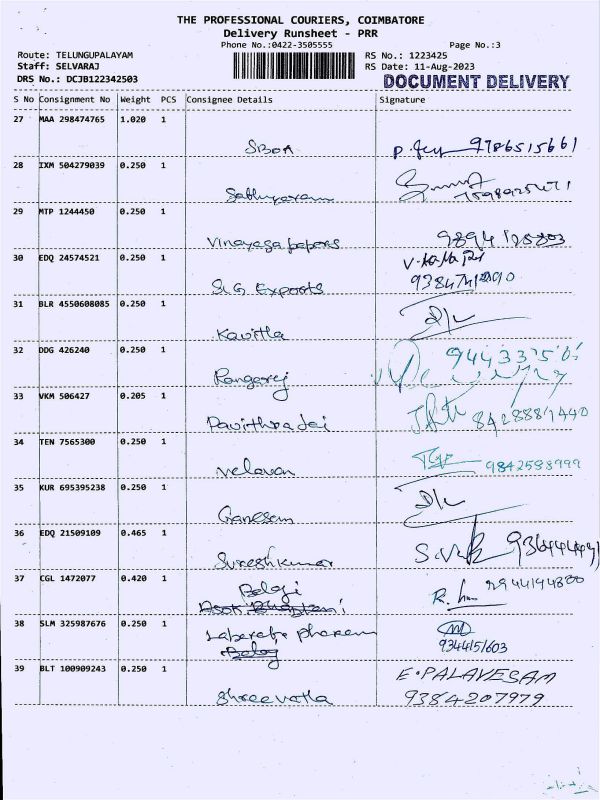 THE PROFESSIONAL COURIERS, COIMBATORE
Delivery Runsheet - PRR
Phone No.:0422-3505555 Page No.:3
Route: TELUNGUPALAYAM RS No.: 1223425
Staff: SELVARAJ RS Date: 11-Aug-2023
DRS No.: DCJB122342503 DOCUMENT DELIVERY
S No Consignment No Weight PCS Consignee Details Signature
27 MAA 298474765 1.020 1
SBOA 9786515661
28 IXM 504279039 0.250 1
29 MTP 1244450 0.250 1
Vinayaga papers 9894125803
30 EDQ 24574521 0.250 1
Exports
31 BLR 4550608085 0.250 1
Kavitha
32 DDG 426240 0.250 1
Rangaraj
33 VKM 506427 0.205 1
34 TEN 7565300 0.250 1
velavan 9842598999
35 KUR 695395238 0.250 1
Ganesan
36 EDQ 21509109 0.465 1
Sureshkumar
37 CGL 1472077 0.420 1
Balaji
38 SLM 325987676 0.250 1
9344151603
39 BLT 100909243 0.250 1
E.PALAVESAM
Shreevatha 9384207979